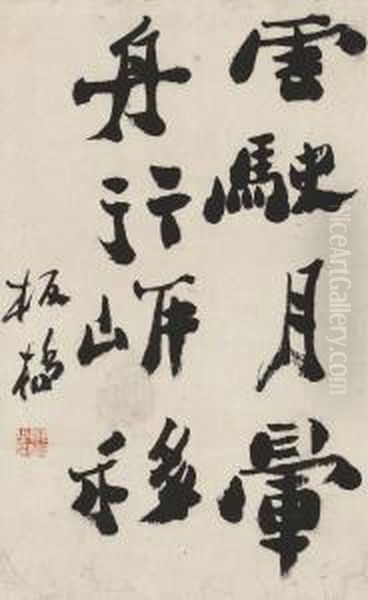 雲駛月暈
舟行岸移
板橋
NiceArtGallery.com